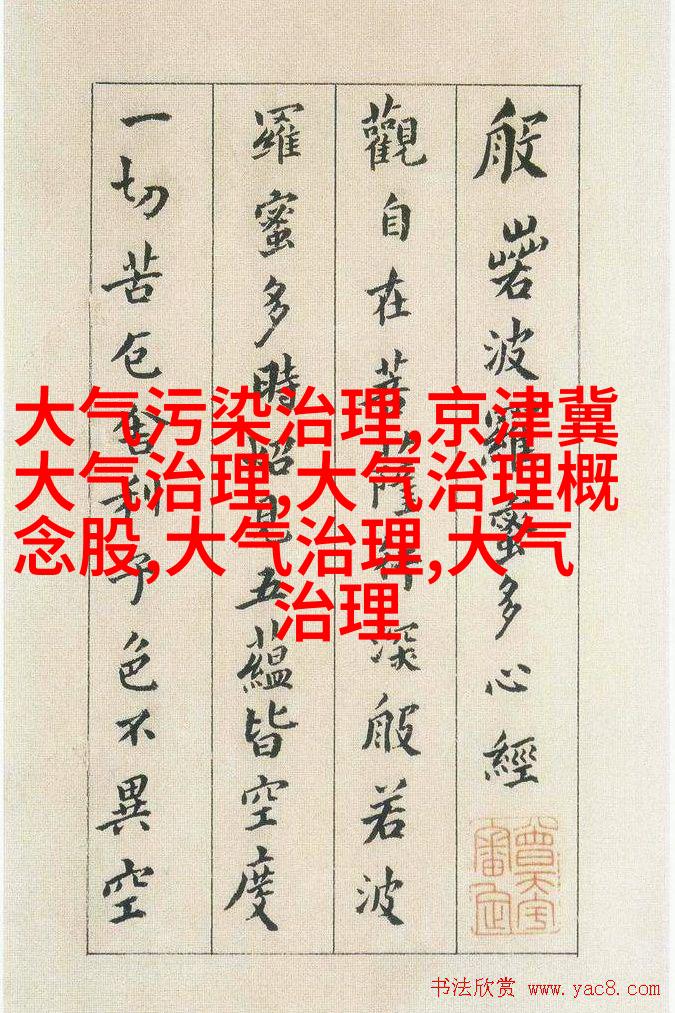 般若波羅蜜多心經
觀自在菩薩行深般若波
羅蜜多時照見五蘊皆空度
一切苦厄舍利子色不異空
大气污染治理,京津冀
大气治理,大气治理概
念股,大气治理,大气
治理
书法欣赏 www.yac8.com